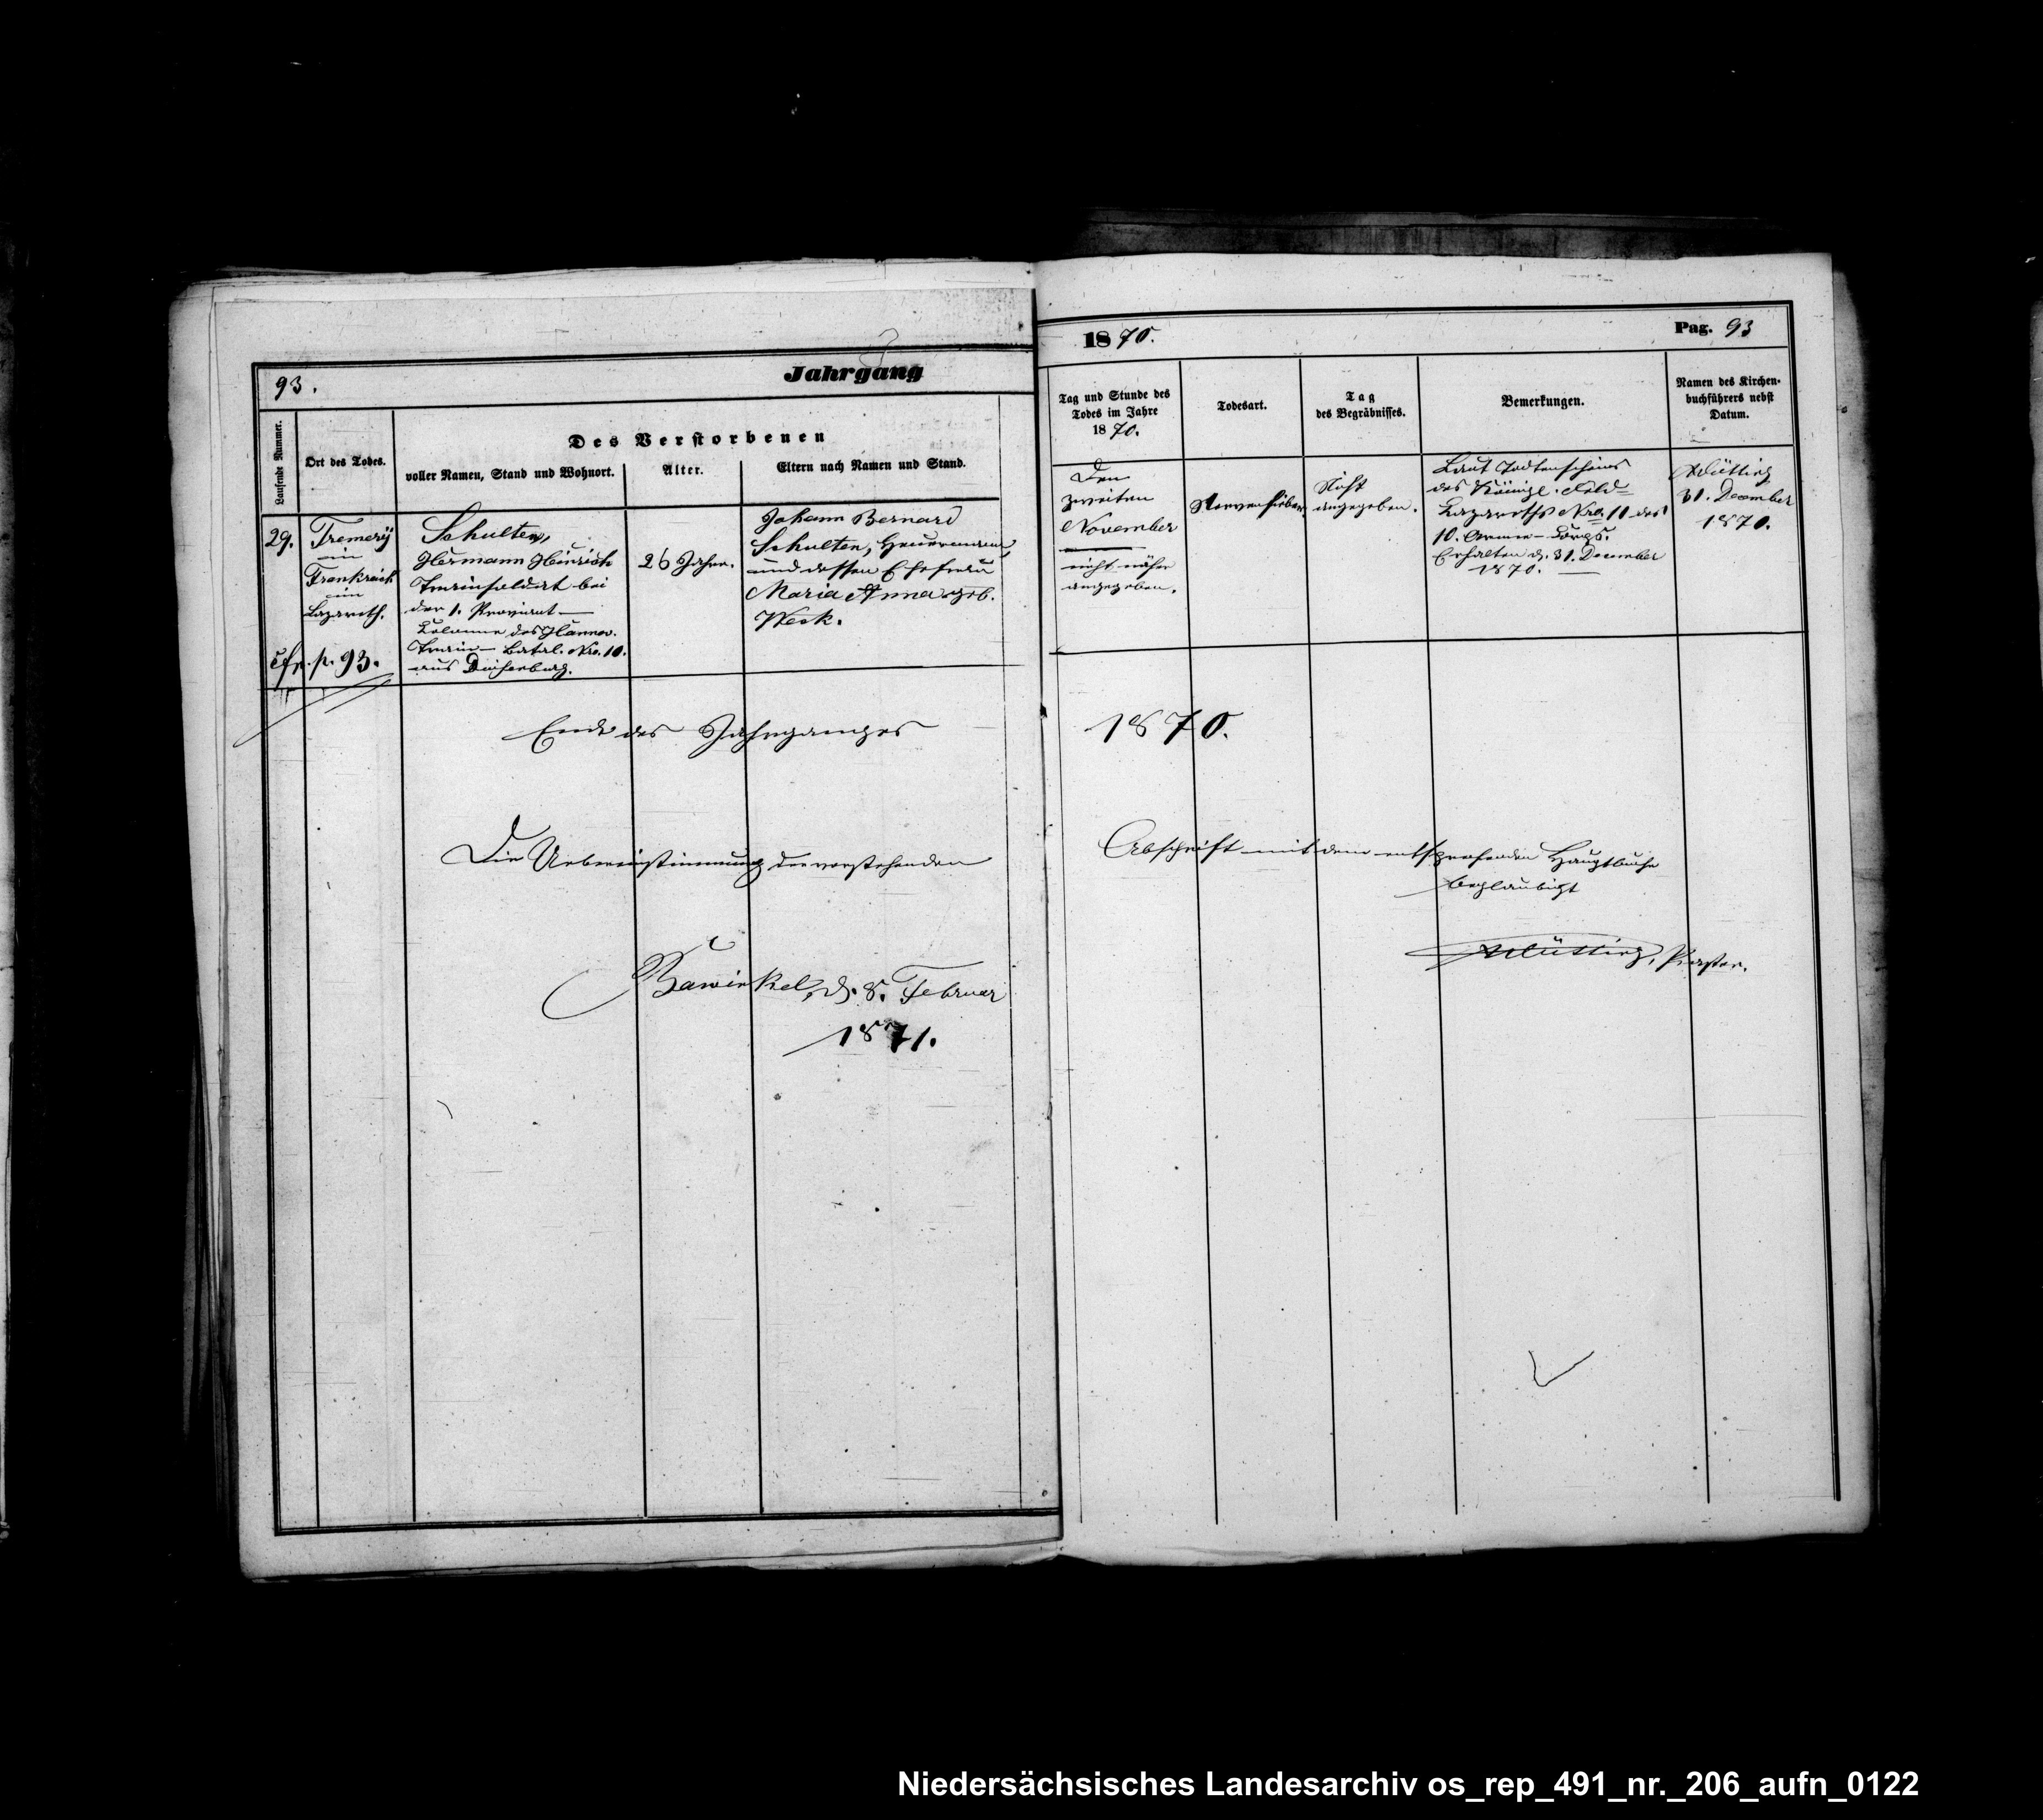 93.
Jahrgang
1870.
Pag. 93
Laufende Nummer.
Ort des Todes.
Des Verstorbenen
voller Namen, Stand und Wohnort.
Alter.
Eltern nach Namen und Stand.
Tag und Stunde des
Todes im Jahre
1870.
Todesart.
Tag
des Begräbnisses.
Bemerkungen.
Namen des Kirchen-
buchführers nebst
Datum.
29.
Tremery
in
Frankreich
im
Lazareth.
cfr. p. 93.
Schulten,
Hermann Heinrich
Trainsoldat bei
der 1. Proviant-
Colonne des Hannov.
Train-Batal. Nro. 10.
aus
26 Jahre.
Johann Bernard
Schulten, Heuermann,
und dessen Ehefrau
Maria Anna geb.
Den
zweiten
November
nicht näher
angegeben.
Nervenfieber.
Nicht
angegeben.
Laut Todtenscheins
des Königl. Feld-
Lazareths Nro. 11 des
10. Armee-Corps.
Erhalten d. 31. December
1870.
31. December
1870.
Ende des Jahrganges
1870.
Die Uebereinstimmung der vorstehenden
Abschrift mit dem entsprechenden Hauptbuche
beglaubigt
Bawinkel, d. 8. Februar
1871.
Pastor.
Niedersächsisches Landesarchiv os_rep_491_nr._206_aufn_0122